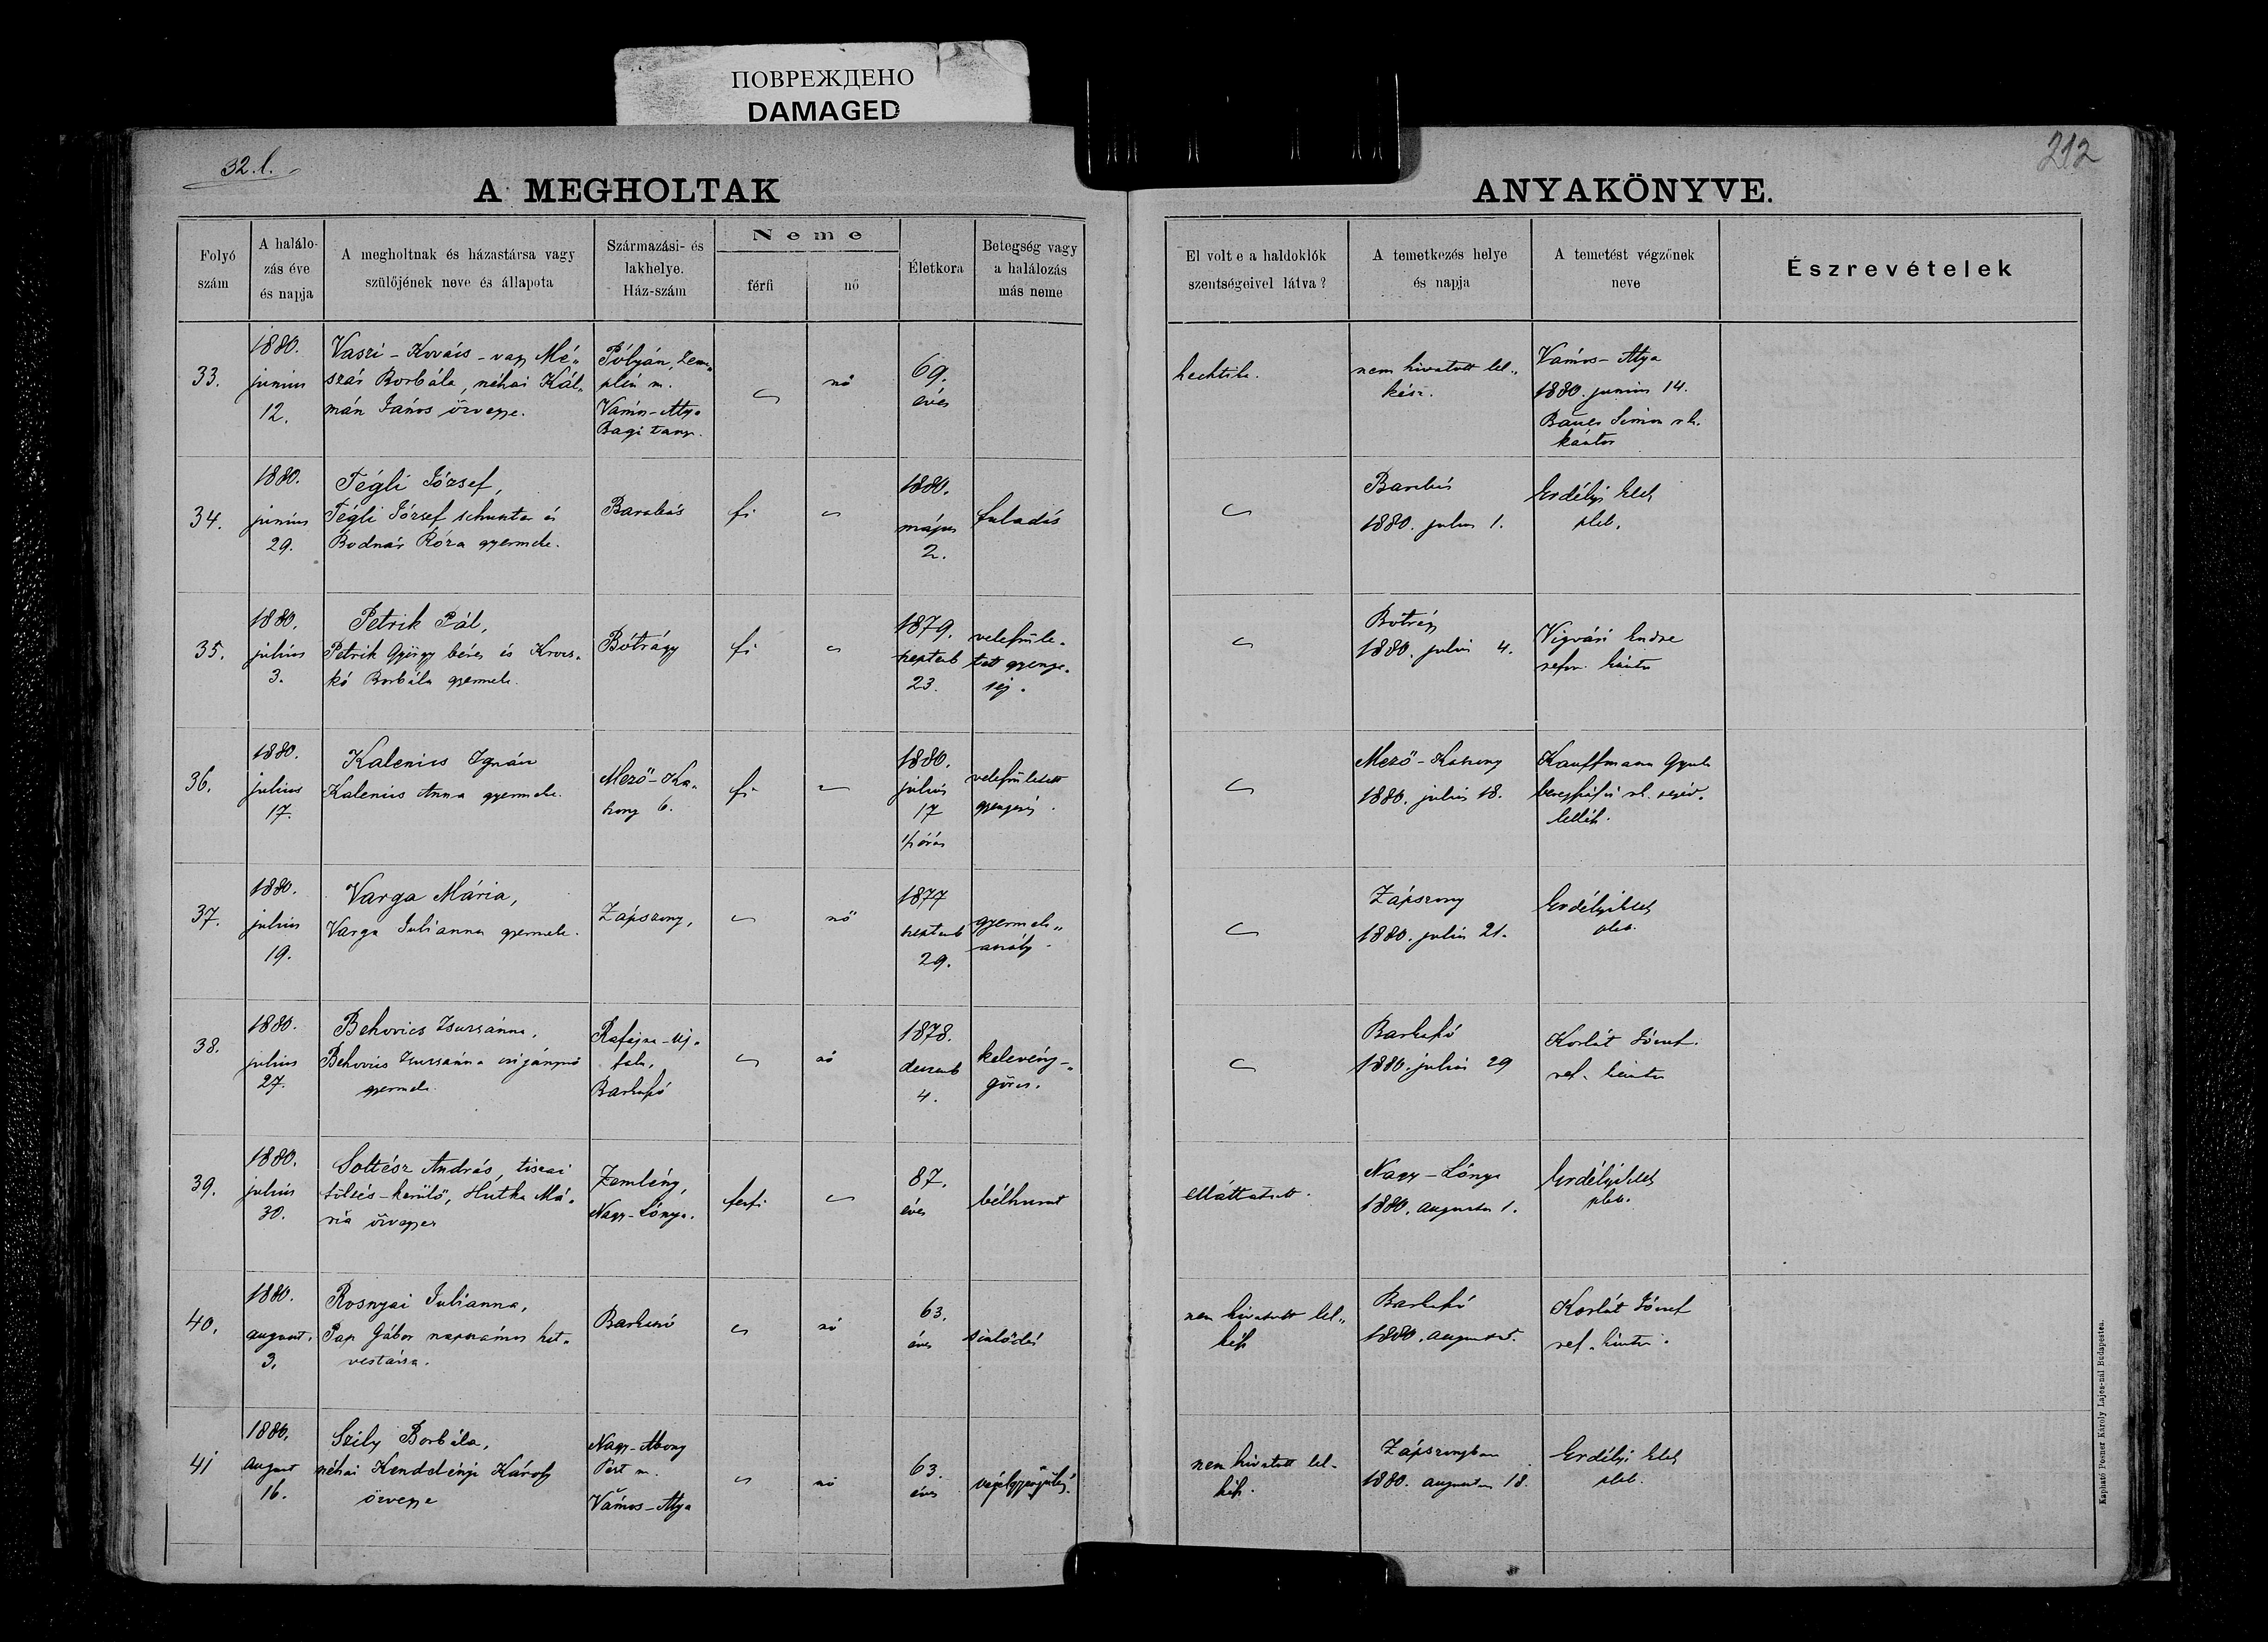 ПОВРЕЖДЕНО
DAMAGED
32. l.
212
A MEGHOLTAK
ANYAKÖNYVE.
Folyó
szám
A halálo-
zás éve
és napja
A megholtnak és házastársa vagy
szülőjének neve és állapota
Származási- és
lakhelye.
Ház-szám
Neme
férfi
nő
Életkora
Betegség vagy
a halálozás
más neme
El volt e a haldoklók
szentségeivel látva?
A temetkezés helye
és napja
A temetést végzőnek
neve
Észrevételek
33.
1880.
junius
12.
Vaszi-Kovács-vagy Mé„
szár Borbála, néhai Kál„
mán János özvegye.
Pólyán, Zem„
plén m.
Vámos-Atya
Bagi tanya.
nő
69.
éves
hecktika.
nem hivatott lel„
kész.
Vámos-Atya
1880. junius 14.
Bauer Simon rk.
kántor
34.
1880.
junius
29.
Tégli József,
Tégli József schuster és
Bodnár Róza gyermeke.
Barabás
fi
1880.
május
2.
fuladás
Barabás
1880. julius 1.
Erdélyi Elek
pleb.
35.
1880.
július
3.
Petrik Pál,
Petrik György béres és Krocs„
kó Borbála gyermeke.
Bótrágy
fi
1879.
septemb
23.
veleszüle„
tett gyenge„
ség.
Bótrágy
1880. julius 4.
Vigvári Endre
refor. kántor
36.
1880.
julius
17.
Kalenics Ignácz
Kalenics Anna gyermeke.
Mező-Ka„
szony 6.
fi
1880.
július
17
veleszületett
gyengeség.
Mező-Kaszony
1880. július 18.
Kauffmann Gyula
beregszászi rk. segéd„
lelkész.
37.
1880.
július
19.
Varga Mária,
Varga Julianna gyermeke.
Zápszony,
nő
1877
septemb
29.
gyermek„
aszály.
Zápszony
1880. julius 21.
Erdélyi Elek
pleb.
38.
1880.
julius
27.
Behovics Zsuzsánna,
Behovics Zsuzsánna czigánynő
gyermeke.
Rafajna-Uj„
falu,
Barkaszó
nő
1878.
decemb
4.
kelevény-„
görcs.
Barkaszó
1880. julius 29
Korlát József
ref. kántor
39.
1880.
július
30.
Soltész András, tiszai
töltés-kerülő, Hutka Má„
ria özvegye
Zemlény,
Nagy-Lónya.
férfi
87.
éves
bélhurut
elláttatott.
Nagy-Lónya
1880. augusztus 1.
Erdélyi Elek
pleb.
40.
1880.
august.
3.
Rosnyai Julianna,
Pap Gábor napszámos hit„
vestársa.
Barkaszó
nő
63.
éves
sinlődés
nem hivatott lel„
kész
Barkaszó
1880. august
Korlát József
ref. kántor.
41
1880.
august
16.
Szily Borbála,
néhai Kendelényi Károly
özvegye
Nagy-Abony
Pest m.
Vámos-Atya
nő
63.
éves
végelgyengülés.
nem hivatott lel-
kész.
Zápszonyban
1880. augustus 18.
Erdélyi Elek
pleb.
Kapható Posner Károly Lajos-nál Budapesten.